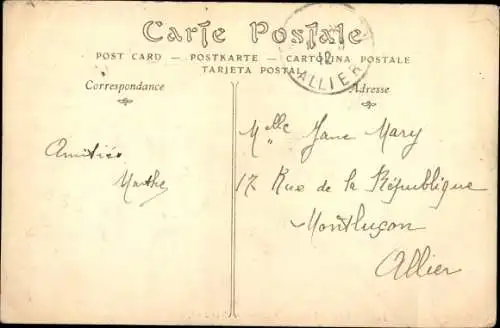 Carte Postale
POST CARD — POSTKARTE — CARTOLINA POSTALE
TARJETA POSTAL
12
ALLIER
Correspondance
Adresse
Amitiés
Marthe
Melle Jane Mary
17 Rue de la République
Montluçon
Allier